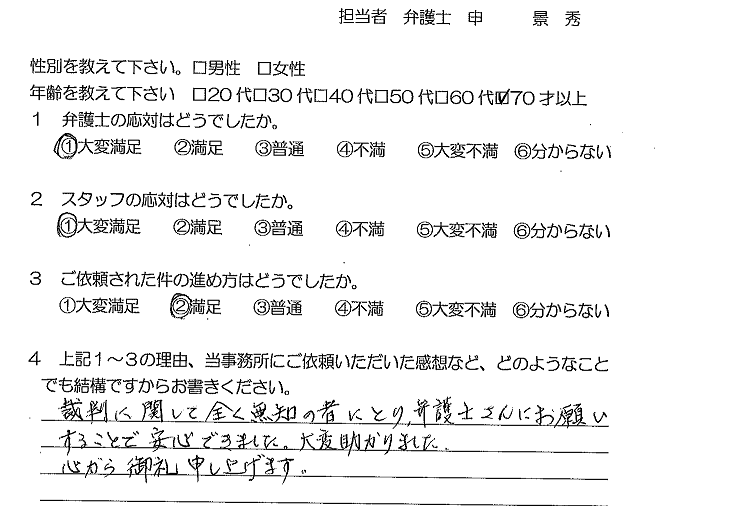 担当者 弁護士 申 景 秀
性別を教えて下さい。□男性 □女性
年齢を教えて下さい □20代□30代□40代□50代□60代☑70才以上
1 弁護士の応対はどうでしたか。
①大変満足 ②満足 ③普通 ④不満 ⑤大変不満 ⑥分からない
2 スタッフの応対はどうでしたか。
①大変満足 ②満足 ③普通 ④不満 ⑤大変不満 ⑥分からない
3 ご依頼された件の進め方はどうでしたか。
①大変満足 ②満足 ③普通 ④不満 ⑤大変不満 ⑥分からない
4 上記1~3の理由、当事務所にご依頼いただいた感想など、どのようなこと
でも結構ですからお書きください。
裁判に関して全く無知の者にとり,弁護士さんにお願い
することで安心できました。大変助かりました.
心から御礼申し上げます。